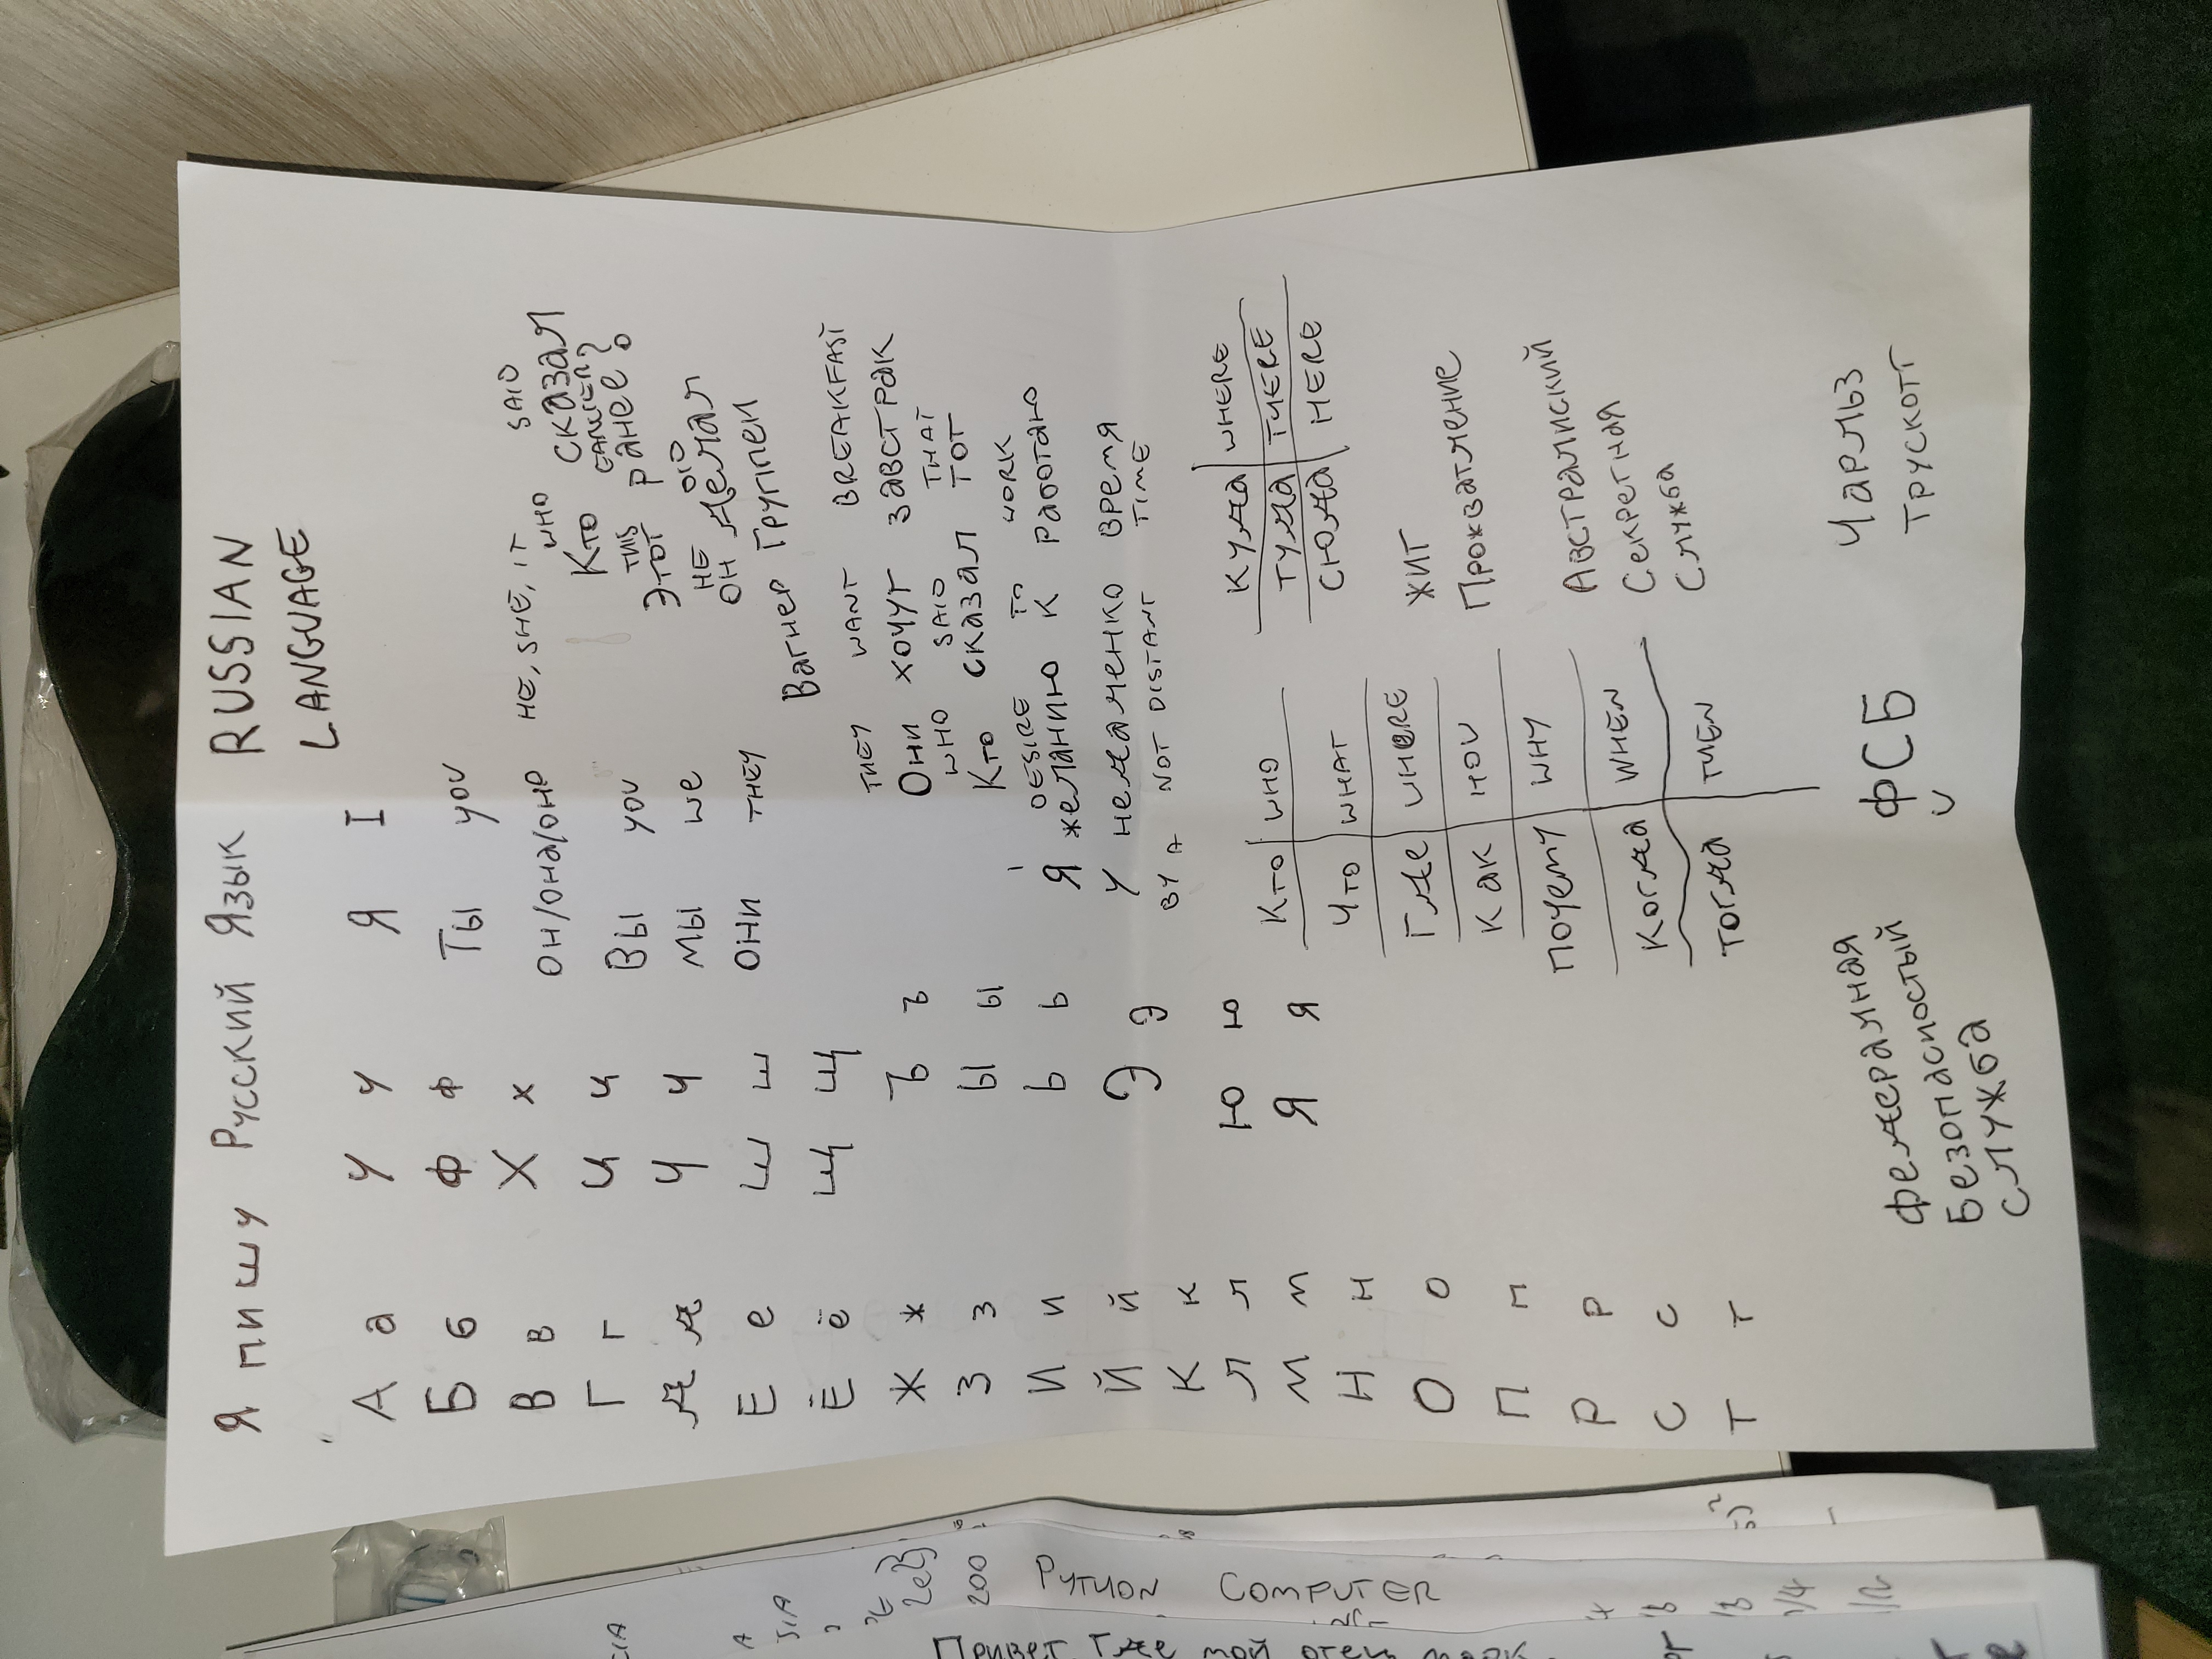 Я пишу Русский Язык RUSSIAN
LANGUAGE
А а
Б б
В в
Г г
Д д
Е е
Ё ё
Ж ж
З з
И и
Й й
К к
Л л
М м
Н н
О о
П п
Р р
С с
Т т
У у
Ф ф
Х х
Ц ц
Ч ч
Ш ш
Щ щ
Ъ ъ
Ы ы
Ь ь
Э э
Ю ю
Я я
Я I
Ты you
он/она/оно HE, SHE, IT
Вы you
мы we
они THEY
WHO SAID
Кто сказал
THIS EARLIER?
Этот ранее?
HE DID
ОН делал
Вагнер Группеи
THEY WANT BREAKFAST
Они хочут завстрак
WHO SAID THAT
Кто сказал тот
I DESIRE TO WORK
Я желанию к работаю
У недаленко время
BY A NOT DISTANT TIME
Кто WHO
Что WHAT
Где WHERE
Как HOW
почему WHY
Когда WHEN
тогда THEN
куда WHERE
туда THERE
сюда HERE
жит
Прожватление
Австралиский
Секретная
Служба
Федералная
Безопасностый
служба
ФСБ
Чарльз
Трускотт
PYTHON COMPUTER
200
Привет. Где мой отец